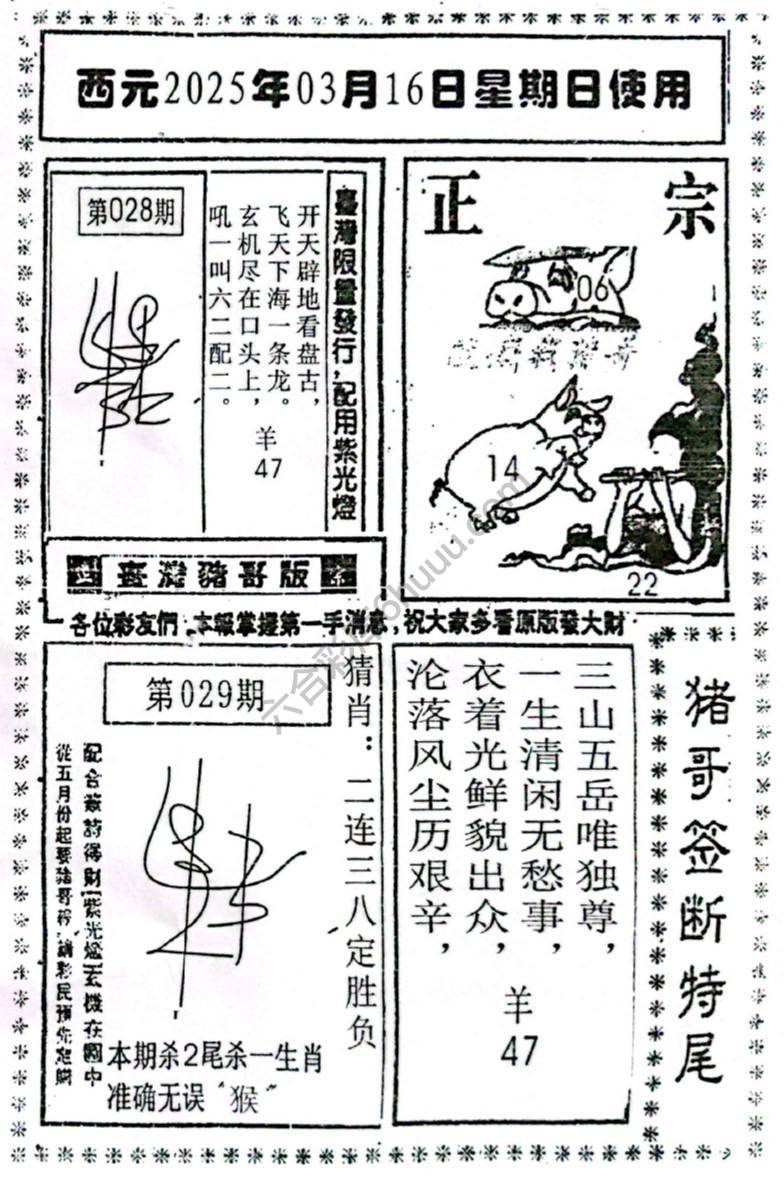 西元2025年03月16日星期日使用
第028期
臺灣限量發行，配用紫光燈
开天辟地看盘古，
飞天下海一条龙。
玄机尽在口头上，
吼一叫六二配二。
羊
47
正宗
06
14
22
臺灣豬哥版
各位彩友們，本報掌握第一手消息，祝大家多看原版發大財
第029期
猜肖：二连三八定胜负
從五月份起要豬哥報，請彩民預先定購
本期杀2尾杀一生肖
准确无误“猴”
三山五岳唯独尊，
一生清闲无愁事，
衣着光鲜貌出众，
沦落风尘历艰辛，
羊
47
猪哥签断特尾